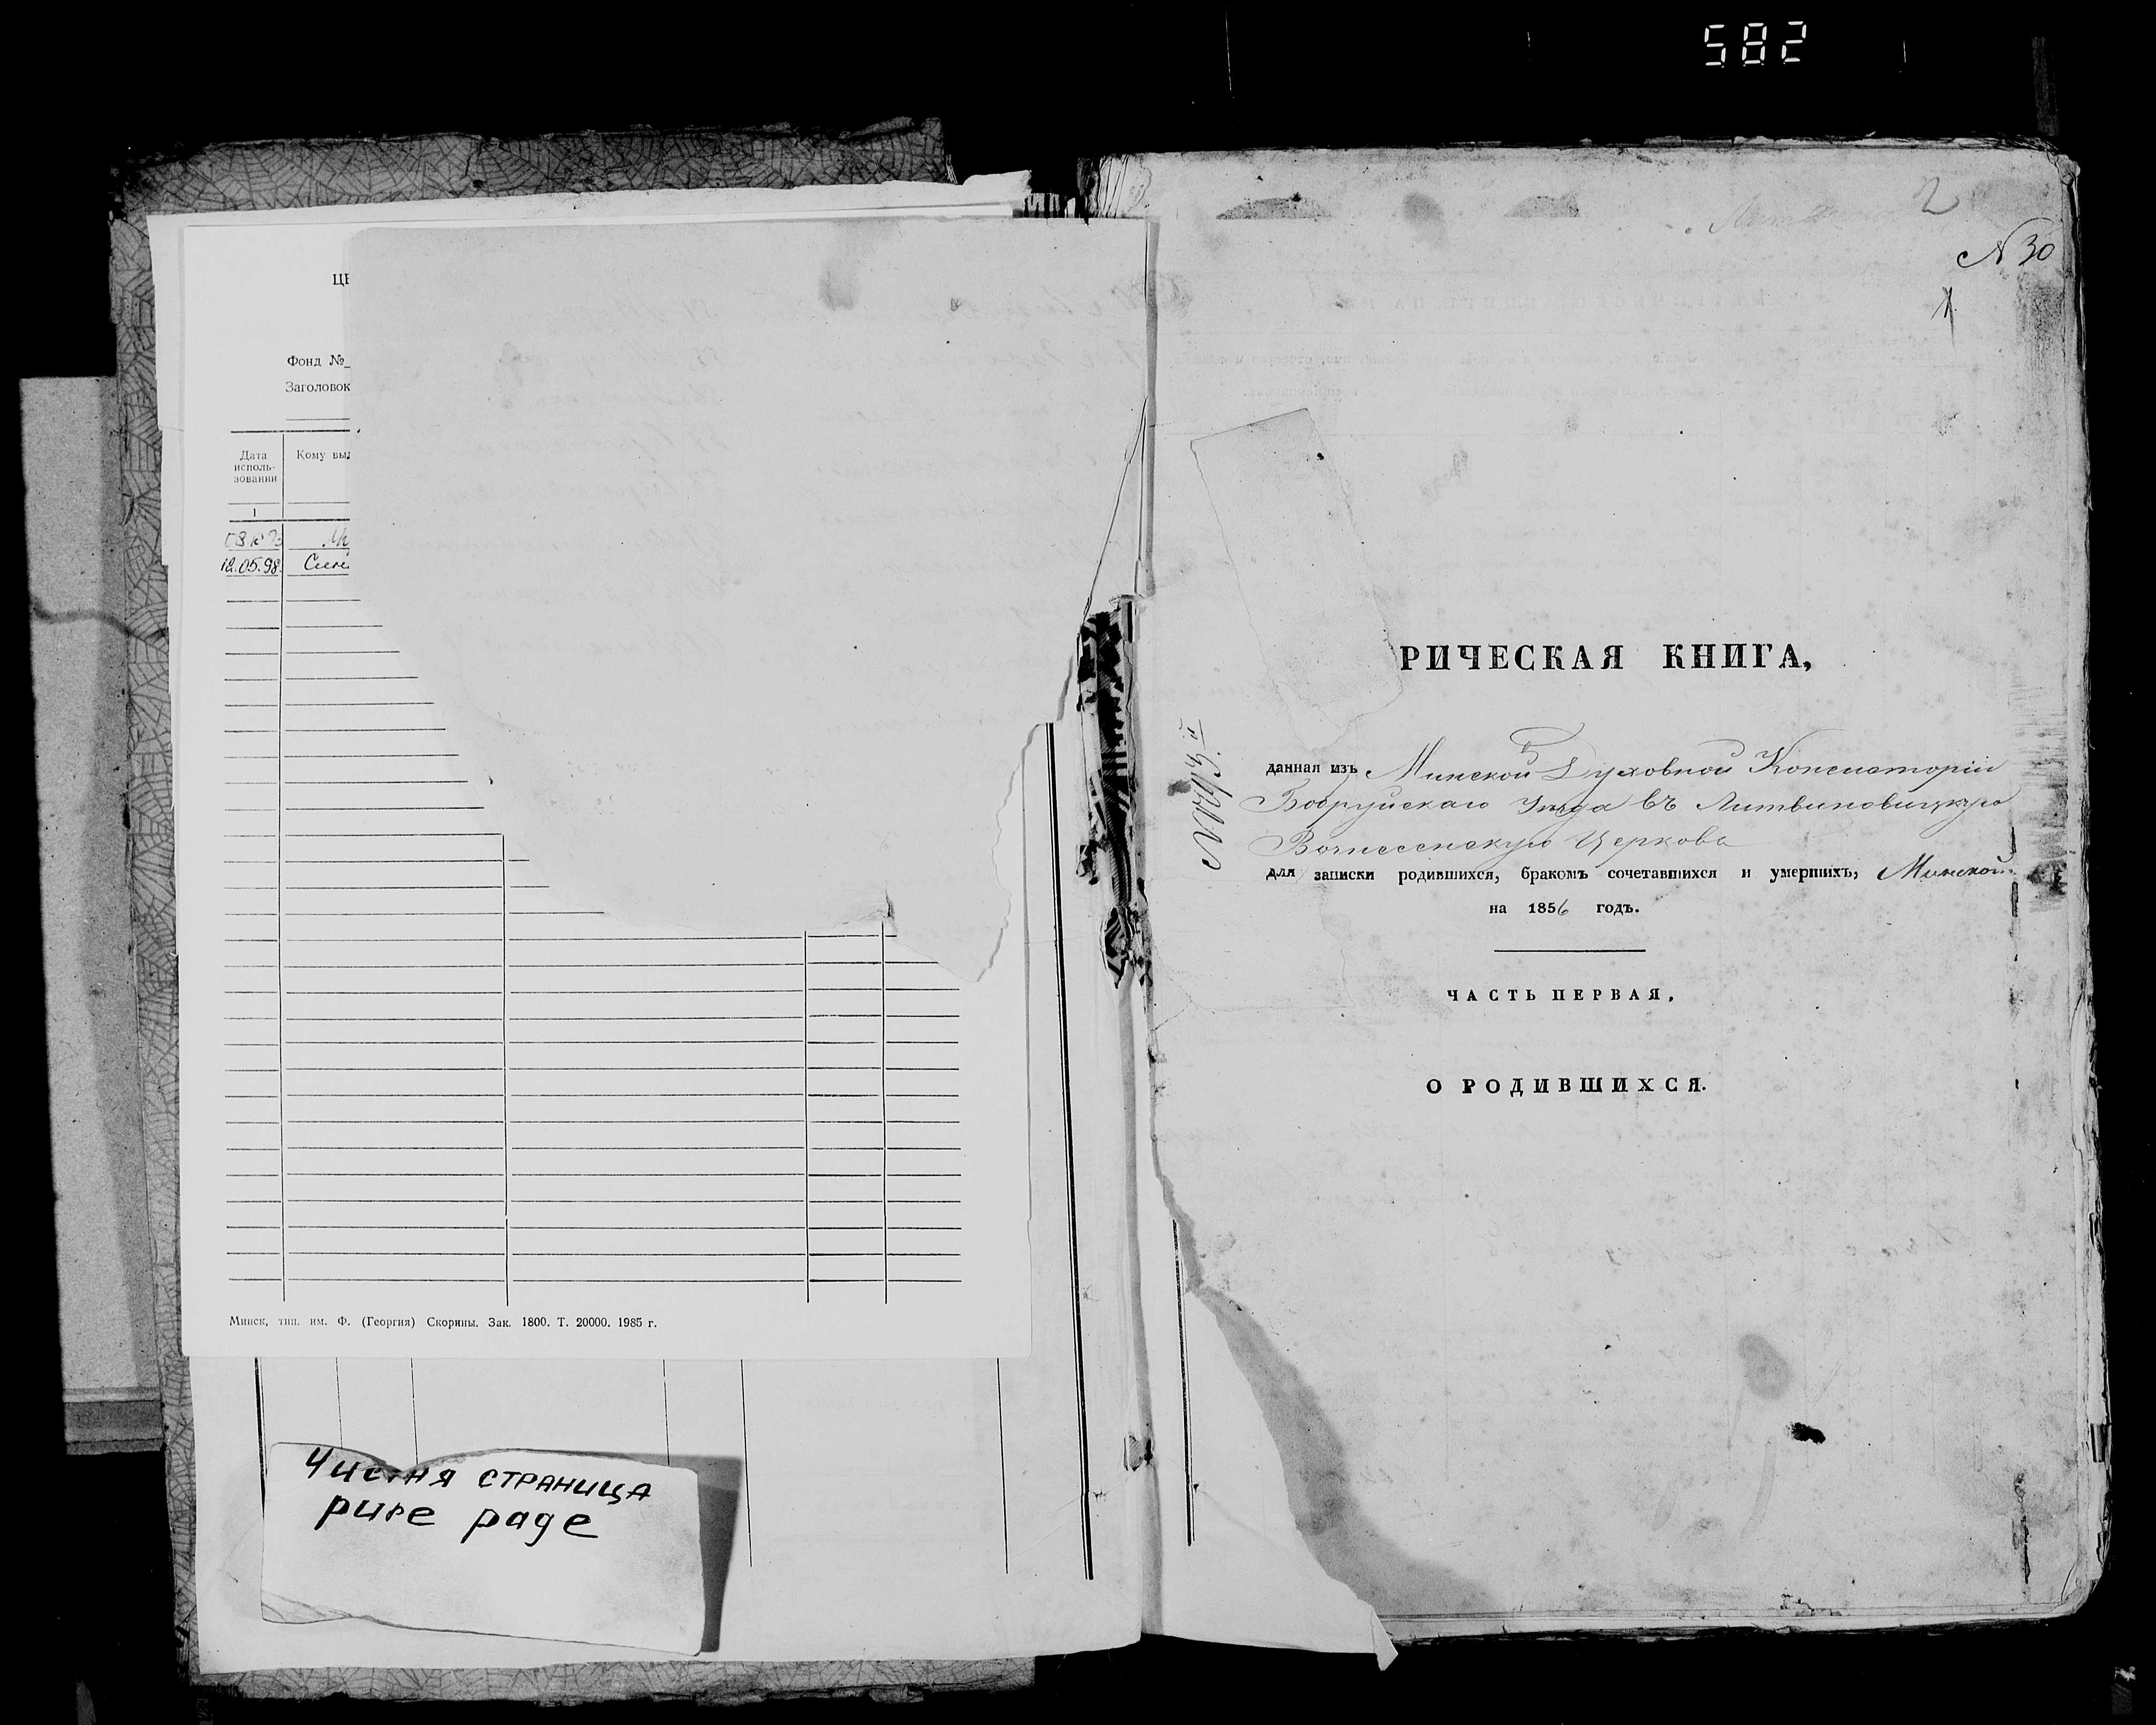 582
ЦЕ
Фонд №
Заголовок
Дата
исполь-
зования
Кому вы
1
12.05.98.
Минск, тип. им. Ф. (Георгия) Скорины. Зак. 1800. Т. 20000. 1985 г.
Чистая страница
pure page
2
N 30
1
РИЧЕСКАЯ КНИГА,
данная изъ Минской Духовной Консисторіи
Бобруйскаго Уезда въ Литвиновицкую
Вознесенскую Церковь
для записки родившихся, бракомъ сочетавшихся и умершихъ, Минской
на 1856 годъ.
ЧАСТЬ ПЕРВАЯ,
О РОДИВШИХСЯ.